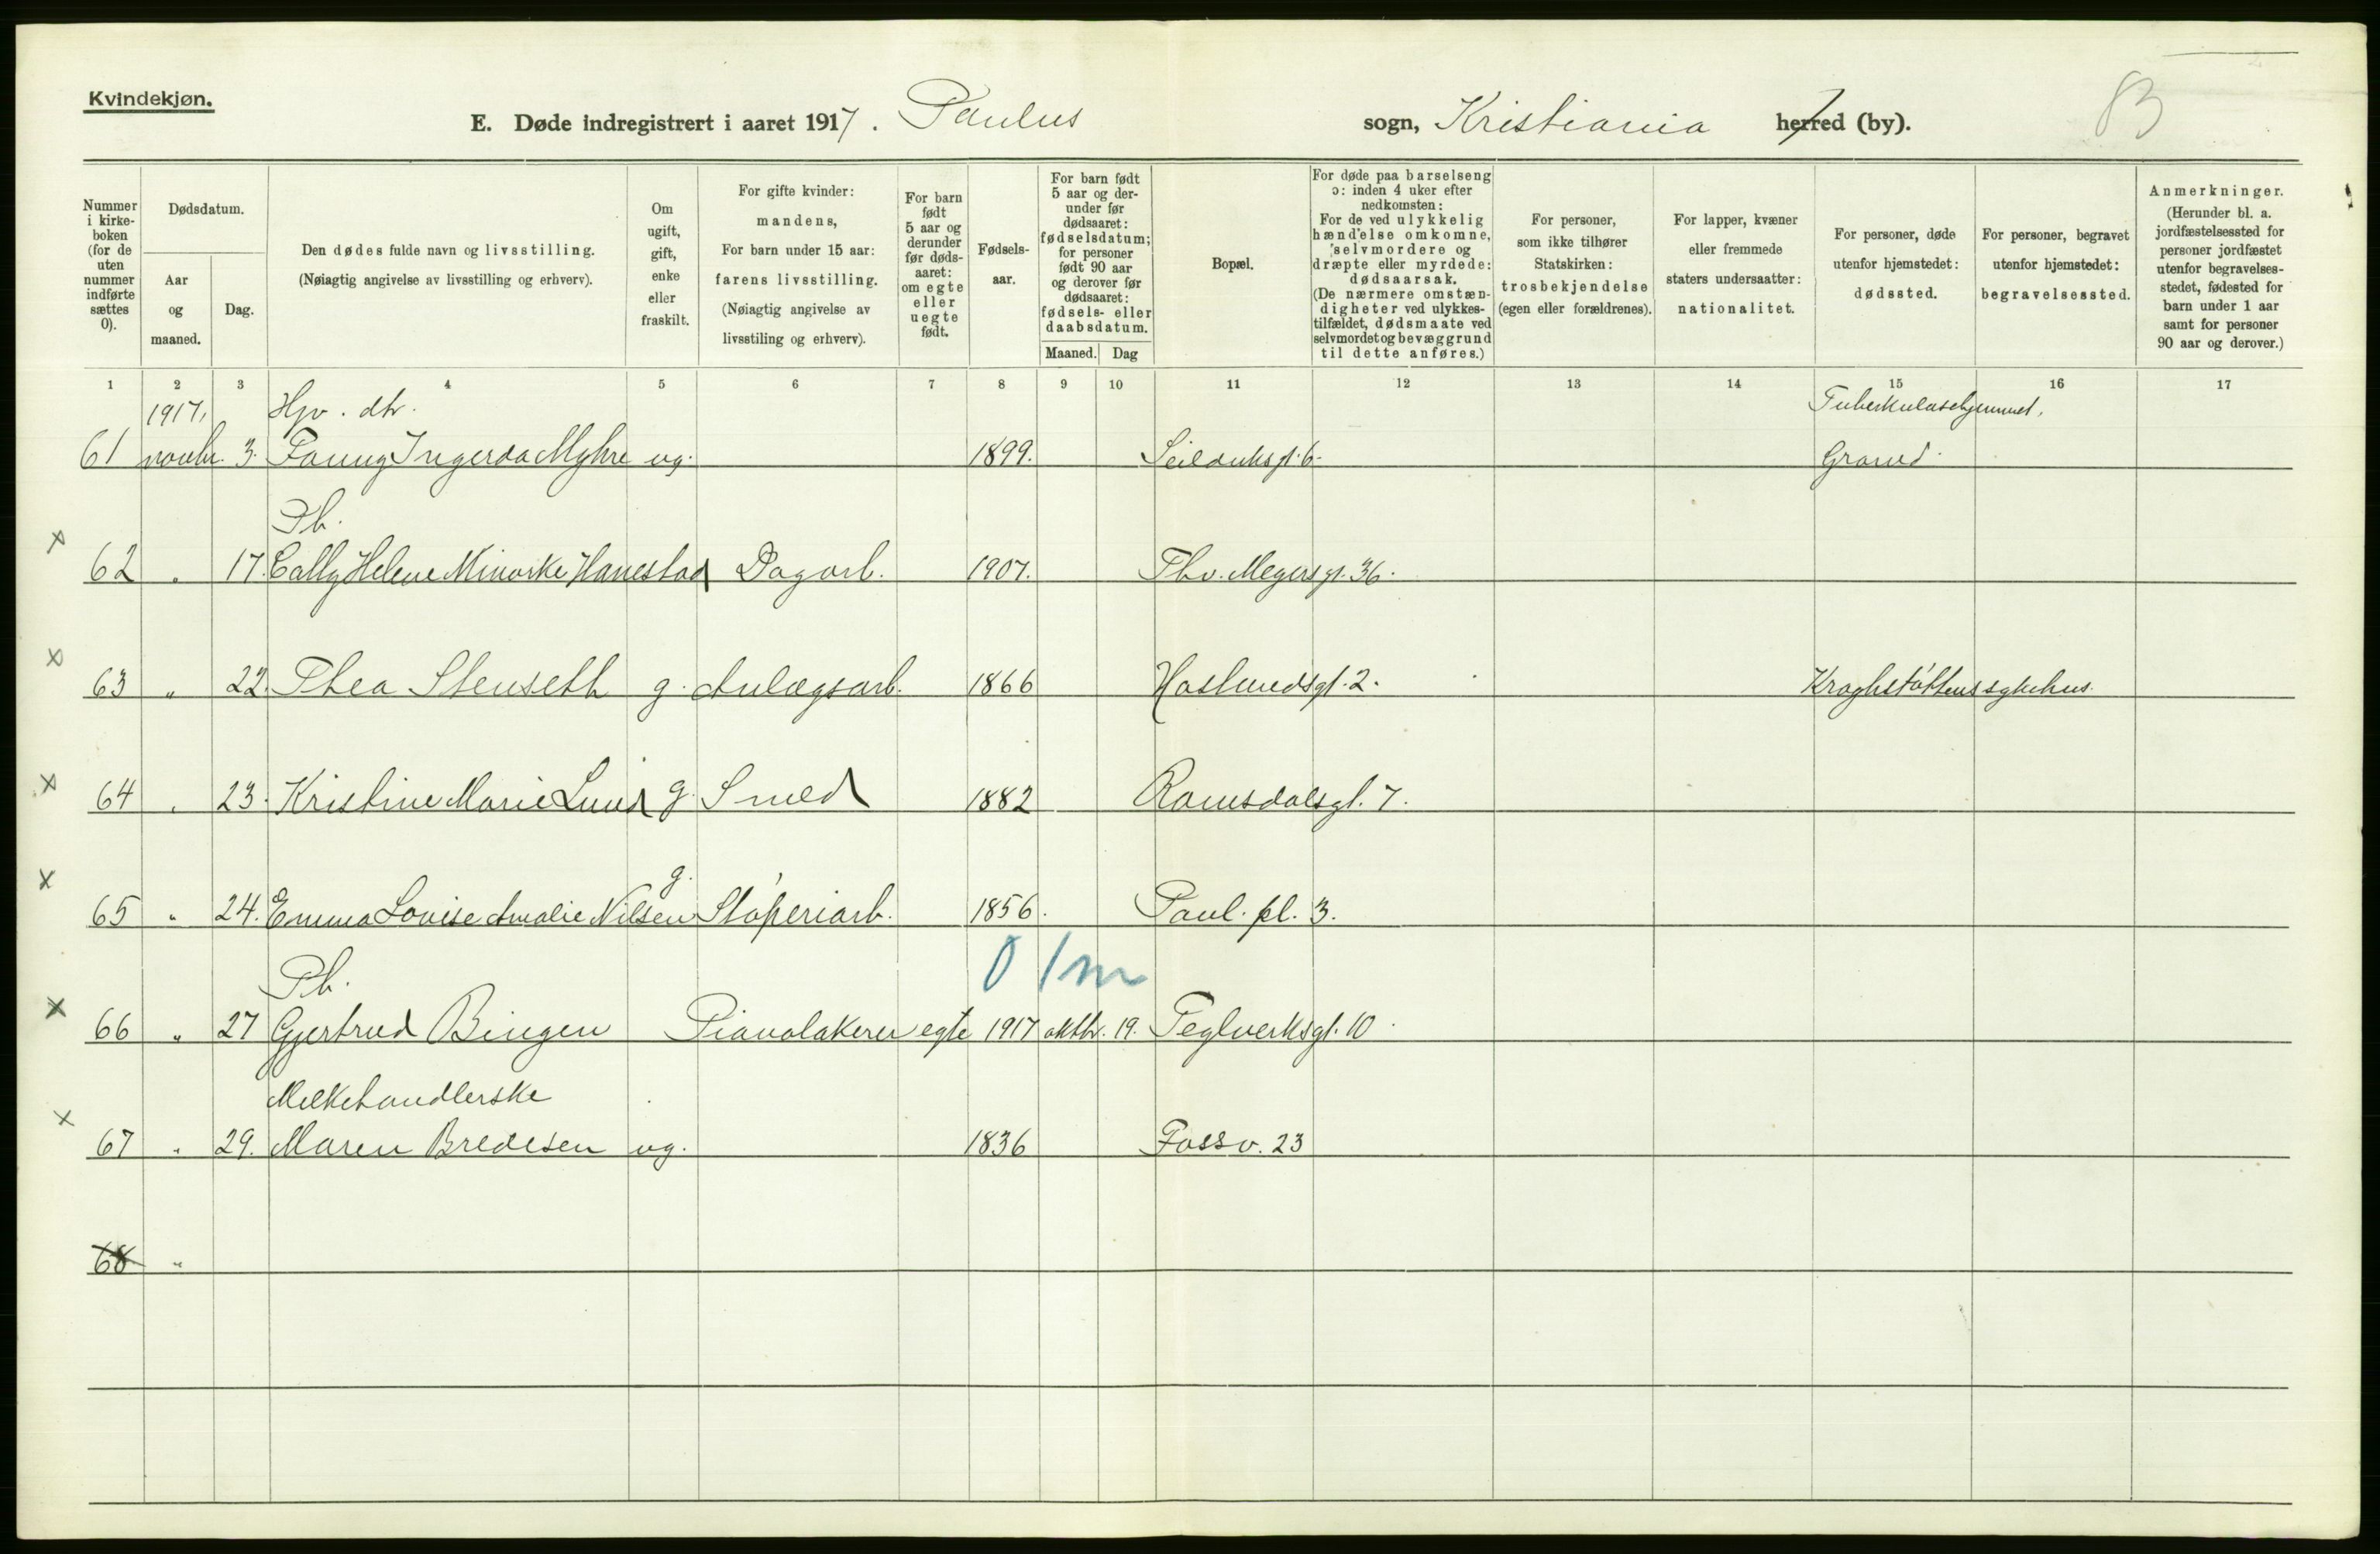 Kvindekjøn.
E. Døde indregistrert i aaret 1917. Paulus sogn, Kristiania herred (by).
B
Nummer i kirkeboken (for de uten nummer indførte sættes 0).
Dødsdatum.
Aar og maaned.
Dag.
Den dødes fulde navn og livsstilling.
(Nøiagtig angivelse av livsstilling og erhverv).
Om ugift, gift, enke eller fraskilt.
For gifte kvinder: mandens,
For barn under 15 aar: farens livsstilling.
(Nøiagtig angivelse av livsstiling og erhverv).
For barn født 5 aar og derunder før dødsaaret: om egte eller uegte født.
Fødselsaar.
For barn født 5 aar og derunder før dødsaaret: fødselsdatum; for personer født 90 aar og derover før dødsaaret: fødsels- eller daabsdatum.
Maaned. Dag
Bopæl.
For døde paa barselseng ɔ: inden 4 uker efter nedkomsten:
For de ved ulykkelig hændelse omkomne, selvmordere og dræpte eller myrdede: dødsaarsak.
(De nærmere omstændigheter ved ulykkestilfældet, dødsmaate ved selvmordet og bevæggrund til dette anføres.)
For personer, som ikke tilhører Statskirken: trosbekjendelse (egen eller forældrenes).
For lapper, kvæner eller fremmede staters undersaatter: nationalitet.
For personer, døde utenfor hjemstedet: dødssted.
For personer, begravet utenfor hjemstedet: begravelsessted.
Anmerkninger.
(Herunder bl. a. jordfæstelsessted for personer jordfæstet utenfor begravelsesstedet, fødested for barn under 1 aar samt for personer 90 aar og derover.)
1 2 3 4 5 6 7 8 9 10 11 12 13 14 15 16 17
1917, Hjv. dtr. Tuberkulosehjemmet,
61 novbr. 3. Fanny Ingerda Myhre ug. 1899. Seilduksgt. 6. Grorud.
Pb.
x 62 " 17. Cally Helene Minorke Hanestad Dagarb. 1907. Thv. Meyersgt. 36.
x 63 " 22. Thea Stenseth g. Anlægsarb. 1866 Haslundsgt. 2. Kroghstøttens sykehus.
x 64 " 23. Kristine Marie Lund g. Smed 1882 Romsdalsgt. 7.
x 65 " 24. Emma Lovise Amalie Nilsen g. Støperiarb. 1856. Paul. pl. 3.
0 1 m
Pb.
x 66 " 27 Gjertrud Bingen Pianolakerer egte 1917 oktbr. 19. Teglverksgt. 10.
Melkehandlerske
x 67 " 29. Maren Bredesen ug. 1836 Fossv. 23
68 "